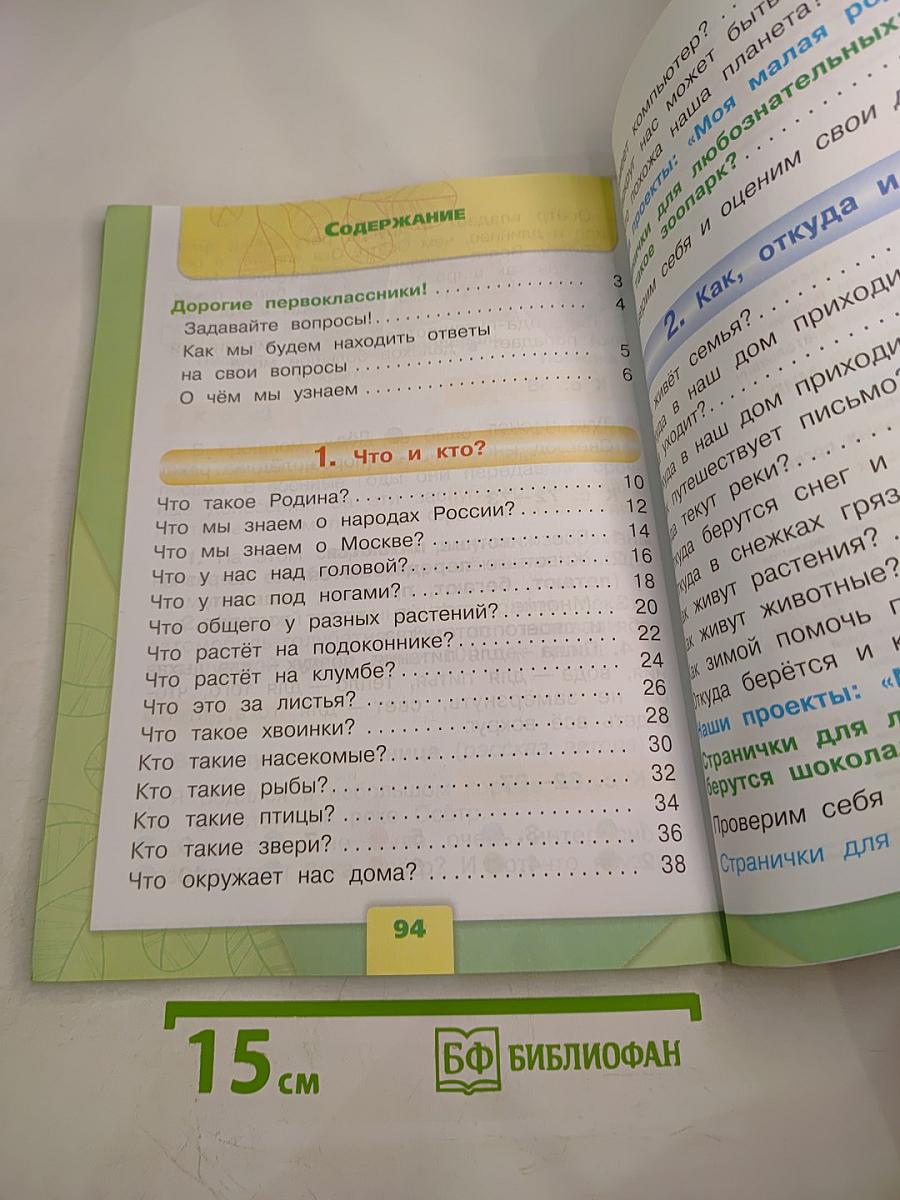 Содержание
Дорогие первоклассники! 3
Задавайте вопросы! 4
Как мы будем находить ответы
на свои вопросы 5
О чём мы узнаем 6
1. Что и кто?
Что такое Родина? 10
Что мы знаем о народах России? 12
Что мы знаем о Москве? 14
Что у нас над головой? 16
Что у нас под ногами? 18
Что общего у разных растений? 20
Что растёт на подоконнике? 22
Что растёт на клумбе? 24
Что это за листья? 26
Что такое хвоинки? 28
Кто такие насекомые? 30
Кто такие рыбы? 32
Кто такие птицы? 34
Кто такие звери? 36
Что окружает нас дома? 38
94
компьютер?
нас может быть
похожа наша планета?
проекты: «Моя малая
для любознательных
зоопарк?
себя и оценим свои
2. Как, откуда и
живёт семья?
в наш дом
уходит?
в наш дом
путешествует письмо?
текут реки?
берутся снег и
в снежках
живут растения?
живут животные?
зимой помочь
Откуда берётся и
Наши проекты:
Странички для
берутся
Проверим себя
Странички для
15 см
БФ БИБЛИОФАН